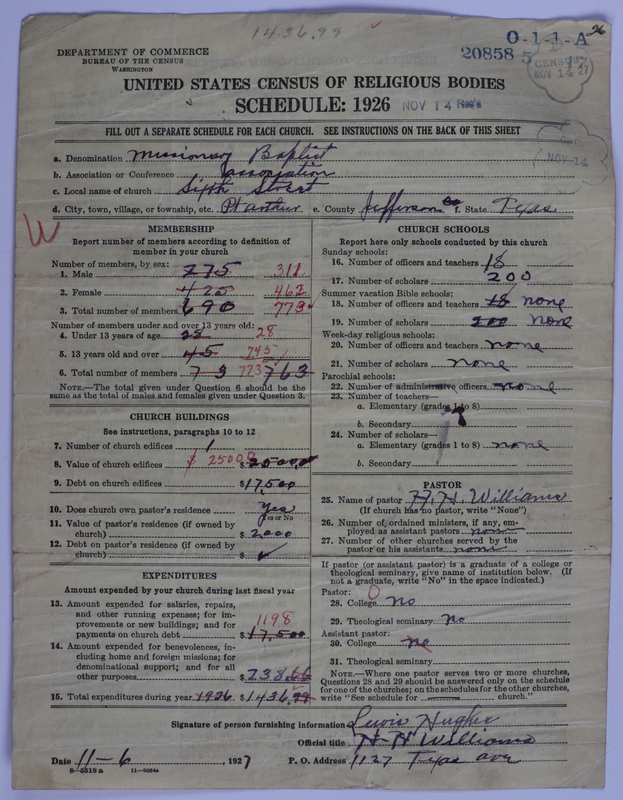 1436.99
26
O-1-1-A
20858 5
DEPARTMENT OF COMMERCE
BUREAU OF THE CENSUS
WASHINGTON
CENSUS
NOV 14 27
UNITED STATES CENSUS OF RELIGIOUS BODIES
SCHEDULE: 1926 NOV 14
FILL OUT A SEPARATE SCHEDULE FOR EACH CHURCH. SEE INSTRUCTIONS ON THE BACK OF THIS SHEET
NOV 14
a. Denomination Missionary Baptist
b. Association or Conference association
c. Local name of church Sixth Street
d. City, town, village, or township, etc. Pt arthur e. County Jefferson Co f. State Texas
W
MEMBERSHIP
Report number of members according to definition of
member in your church
Number of members, by sex:
1. Male 275 311
2. Female 425 462
3. Total number of members 690 773
Number of members under and over 13 years old:
4. Under 13 years of age 28
5. 13 years old and over 45 745
6. Total number of members 73 773 763
NOTE.—The total given under Question 6 should be the
same as the total of males and females given under Question 3.
CHURCH BUILDINGS
See instructions, paragraphs 10 to 12
7. Number of church edifices 1
8. Value of church edifices $ 25000 $
9. Debt on church edifices $ 17,500
10. Does church own pastor's residence Yes
Yes or No
11. Value of pastor's residence (if owned by
church) $ 2,000
12. Debt on pastor's residence (if owned by
church) $
EXPENDITURES
Amount expended by your church during last fiscal year
13. Amount expended for salaries, repairs,
and other running expenses; for im-
provements or new buildings; and for
payments on church debt $ 17,500 1198
14. Amount expended for benevolences,
including home and foreign missions; for
denominational support; and for all
other purposes $ 238.66
15. Total expenditures during year 1926 $ 1436.99
CHURCH SCHOOLS
Report here only schools conducted by this church
Sunday schools:
16. Number of officers and teachers 18
17. Number of scholars 200
Summer vacation Bible schools:
18. Number of officers and teachers 18 none
19. Number of scholars 200 none
Week-day religious schools:
20. Number of officers and teachers none
21. Number of scholars none
Parochial schools:
22. Number of administrative officers none
23. Number of teachers—
a. Elementary (grades 1 to 8)
b. Secondary
24. Number of scholars—
a. Elementary (grades 1 to 8) none
b. Secondary
PASTOR
25. Name of pastor H. H. Williams
(If church has no pastor, write "None")
26. Number of ordained ministers, if any, em-
ployed as assistant pastors none
27. Number of other churches served by the
pastor or his assistants none
If pastor (or assistant pastor) is a graduate of a college or
theological seminary, give name of institution below. (If
not a graduate, write "No" in the space indicated.)
Pastor: O
28. College no
29. Theological seminary no
Assistant pastor:
30. College no
31. Theological seminary
NOTE.—Where one pastor serves two or more churches,
Questions 28 and 29 should be answered only on the schedule
for one of the churches; on the schedules for the other churches,
write "See schedule for church."
Signature of person furnishing information Lewis Hughes
Official title H. H Williams
Date 11-6, 1927 P. O. Address 1127 Texas ave
8-5518 a 11-9024a